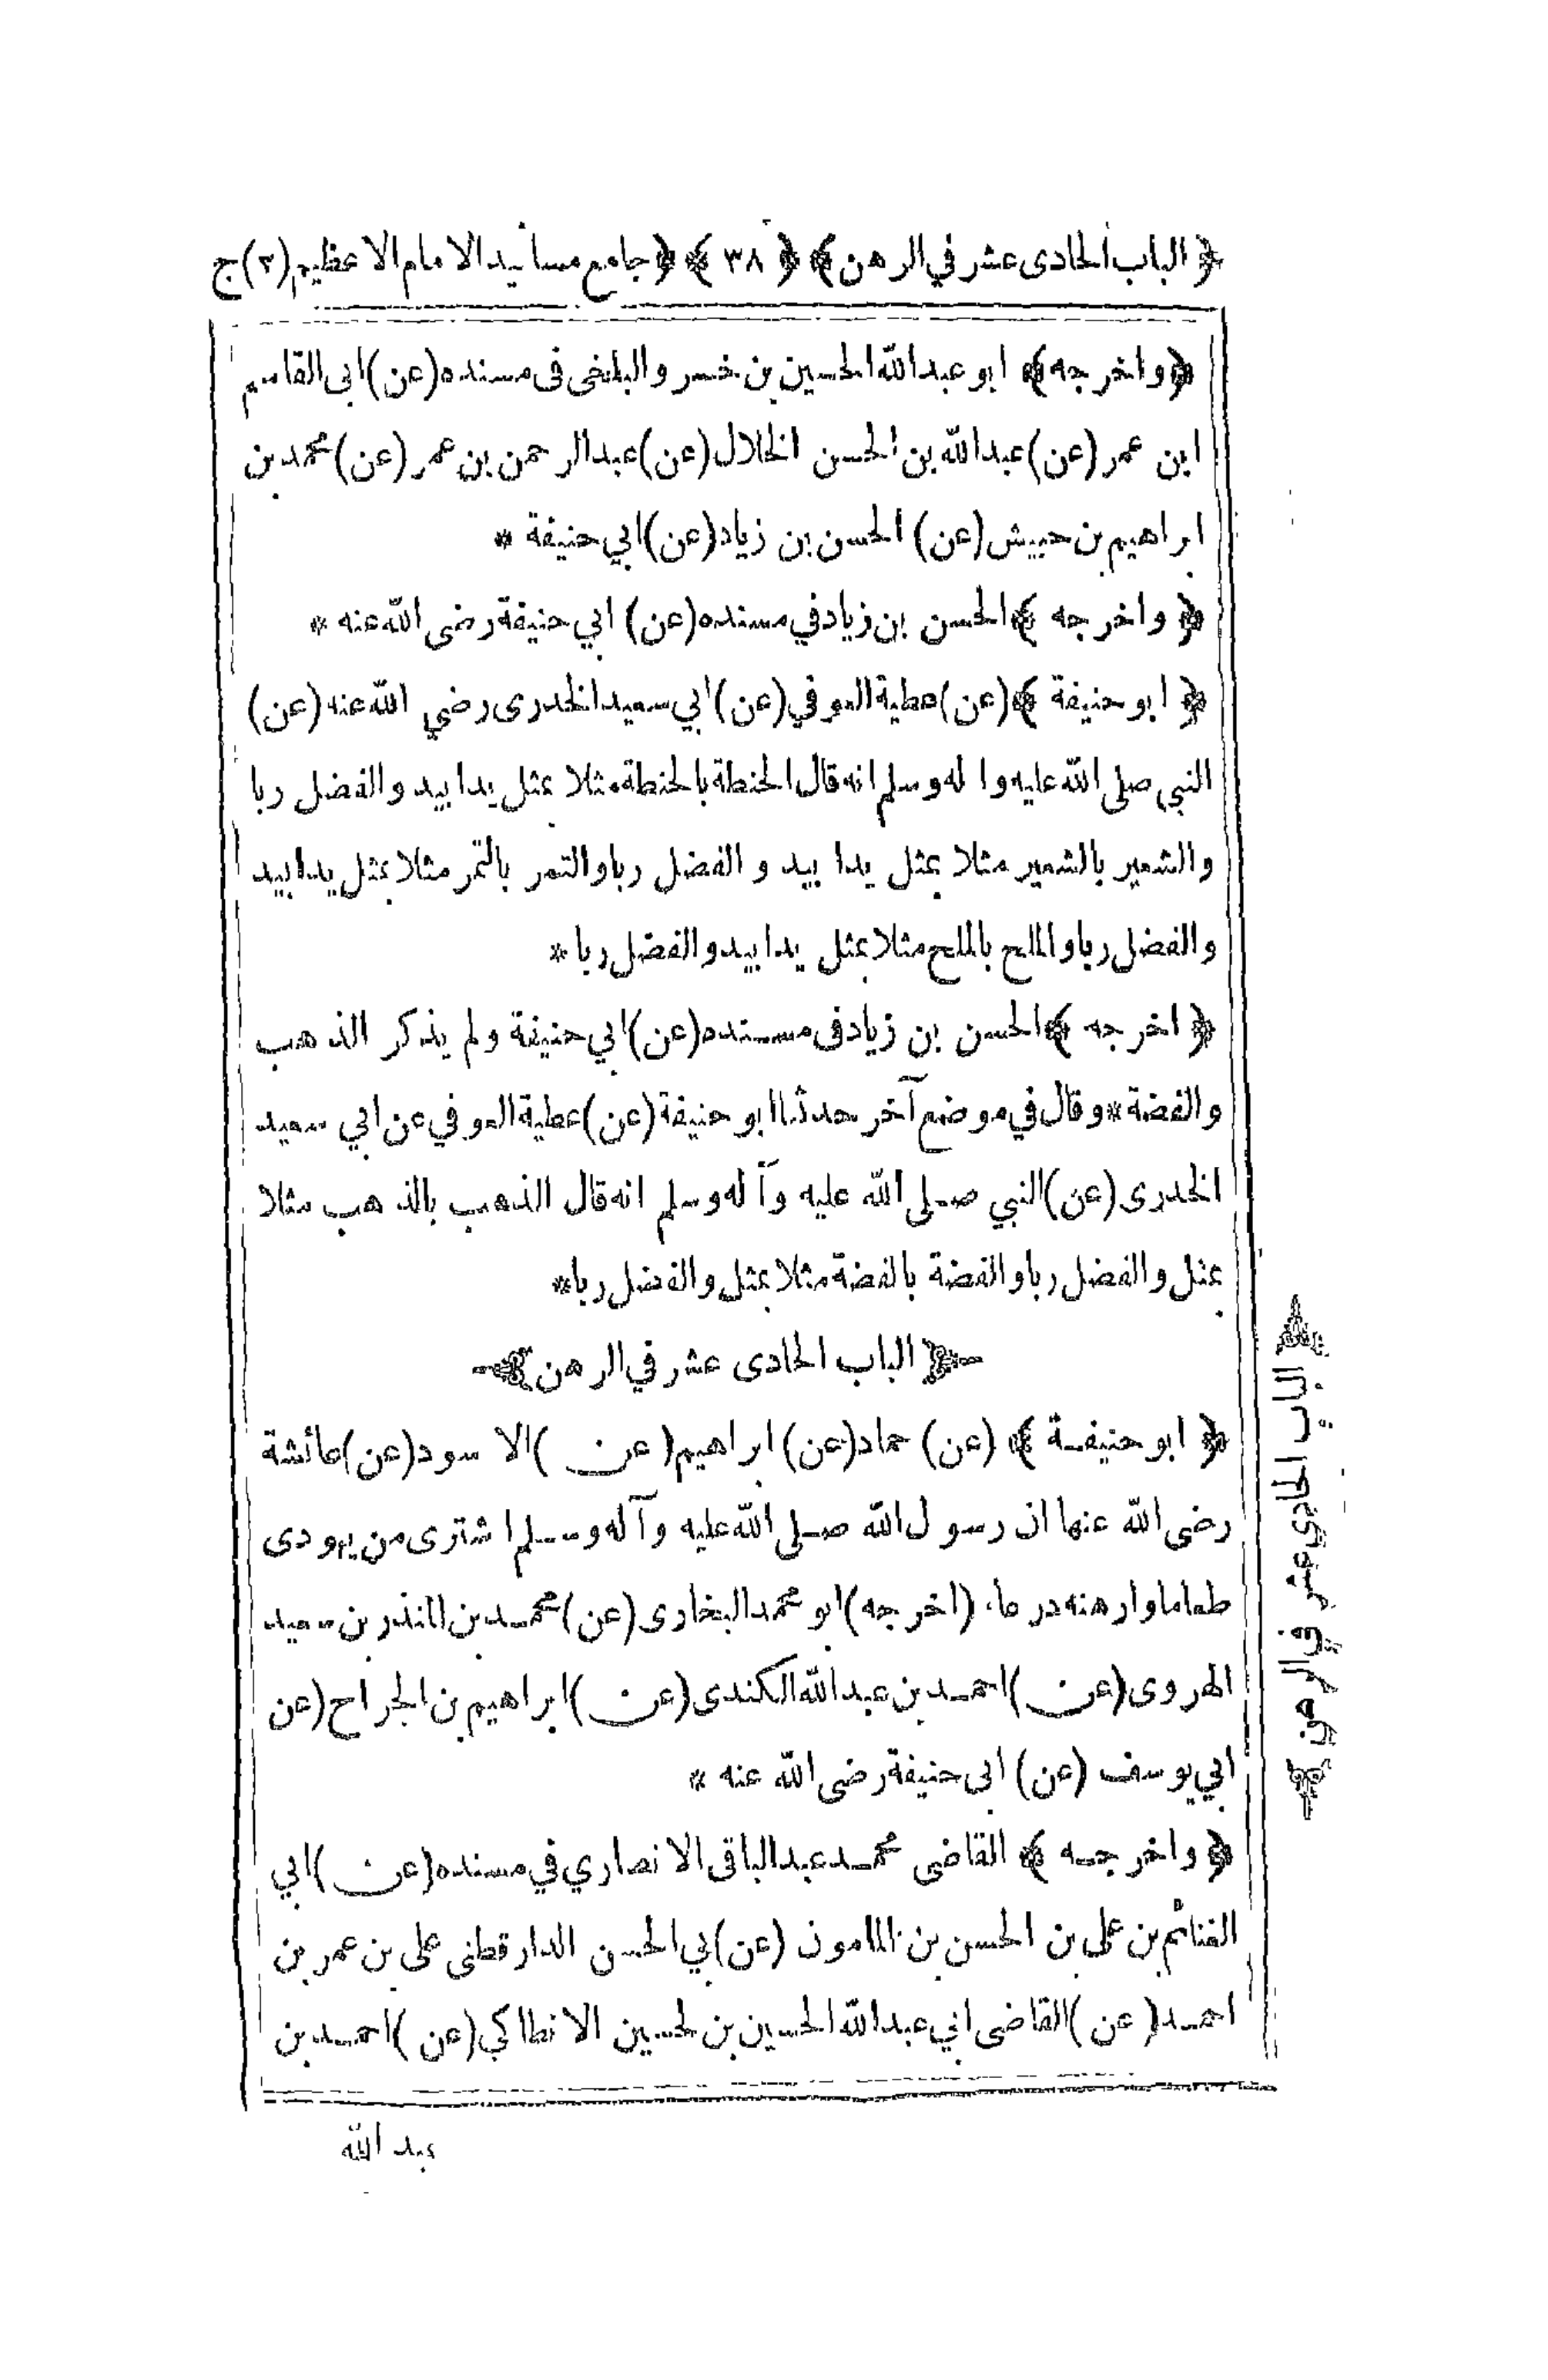 ﴿ الباب الحادى عشر في الرهن ﴾ ﴿ ٣٨ ﴾ ﴿ جامع مسانيد الامام الاعظم (٢) ج
﴿ واخرجه ﴾ ابو عبدالله الحسين بن خسرو البلخى فى مسنده (عن) ابى القاسم
ابن عمر (عن) عبدالله بن الحسن الخلال (عن) عبدالرحمن بن عمر (عن) محمد بن
ابراهيم بن حبيش (عن) الحسن بن زياد (عن) ابي حنيفة *
﴿ واخرجه ﴾ الحسن بن زياد في مسنده (عن) ابي حنيفة رضى الله عنه *
﴿ ابو حنيفة ﴾ (عن) عطية العوفي (عن) ابي سعيد الخدرى رضي الله عنه (عن)
النبي صلى الله عليه واله وسلم انه قال الحنطة بالحنطة مثلا بمثل يدا بيد والفضل ربا
والشعير بالشعير مثلا بمثل يدا بيد و الفضل ربا والتمر بالتمر مثلا بمثل يدا بيد
والفضل ربا والملح بالملح مثلا بمثل يدا بيد والفضل ربا *
﴿ اخرجه ﴾ الحسن بن زياد فى مسنده (عن) ابي حنيفة ولم يذكر الذهب
والفضة * وقال في موضع آخر حدثنا ابو حنيفة (عن) عطية العوفي عن ابي سعيد
الخدرى (عن) النبي صلى الله عليه وآله وسلم انه قال الذهب بالذهب مثلا
بمثل والفضل ربا والفضة بالفضة مثلا بمثل والفضل ربا *
﴿ الباب الحادى عشر في الرهن ﴾
﴿ ابو حنيفة ﴾ (عن) حماد (عن) ابراهيم (عن) الاسود (عن) عائشة
رضى الله عنها ان رسول الله صلى الله عليه وآله وسلم اشترى من يهودى
طعاما وارهنه درعا، (اخرجه) ابو محمد البخارى (عن) محمد بن المنذر بن سعيد
الهروى (عن) احمد بن عبدالله الكندى (عن) ابراهيم بن الجراح (عن
ابي يوسف (عن) ابى حنيفة رضى الله عنه *
﴿ واخرجه ﴾ القاضى محمد عبدالباقى الانصاري في مسنده (عن) ابي
الغنائم بن على بن الحسن بن المامون (عن) بي الحسن الدارقطنى على بن عمر بن
احمد (عن) القاضى ابي عبدالله الحسين بن لحسين الانطاكي (عن) احمد بن
عبد الله
الباب الحادي عشر في الرهن